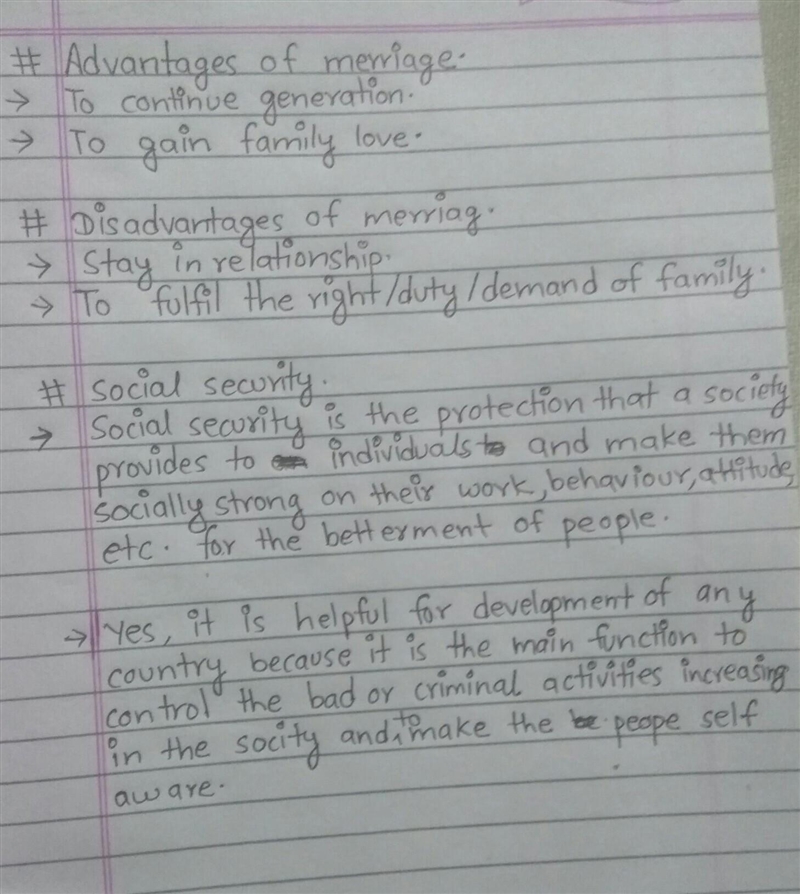 # Advantages of merriage.
→ To continue generation.
→ To gain family love.
# Disadvantages of merriag.
→ Stay in relationship.
→ To fulfil the right/duty/demand of family.
# Social security.
→ Social security is the protection that a society
provides to individuals to and make them
socially strong on their work, behaviour, attitude,
etc. for the betterment of people.
→ Yes, it is helpful for development of any
country because it is the main function to
control the bad or criminal activities increasing
in the socity and, to make the peope self
aware.